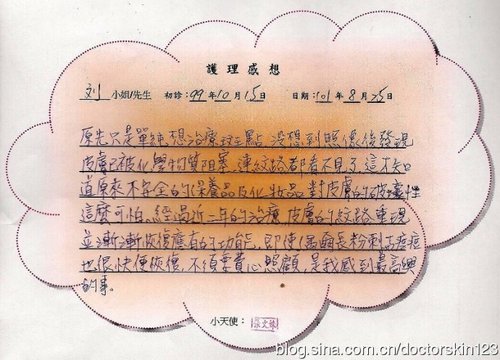 護理感想
刘 小姐/先生 初診:99年10月15日 日期:101年8月25日
原先只是單純想治療斑點 沒想到照像後發現
皮膚已被化學物質阻塞,連紋路都看不見了這才知
道原來不安全的保養品及化妝品 對皮膚的破壞性
這麼可怕、經過近二年的治療 皮膚的紋路重現
並漸漸恢復應有的功能,即使偶爾長粉刺、痘痘
也很快便恢復,不須要費心照顧,是我感到最高興
的事。
小天使:
blog.sina.com.cn/doctorskin123